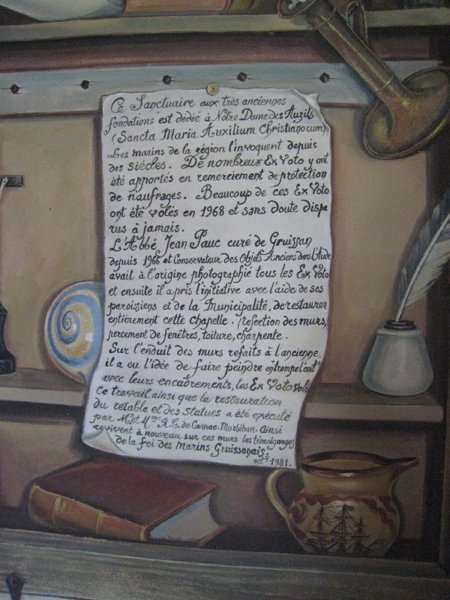 Ce Sanctuaire aux très anciennes
fondations est dédié à Notre Dame des Auzils
(Sancta Maria Auxilium Christianorum).
Les marins de la région l'invoquent depuis
des siècles. De nombreux Ex Voto y ont
été apportés en remerciement de protection
de naufrages. Beaucoup de ces Ex Voto
ont été volés en 1968 et sans doute dispa
rus à jamais.
L'Abbé Jean Pauc curé de Gruissan
depuis 1966 et Conservateur des Objets Anciens dans l'Aude
avait à l'origine photographié tous les Ex Voto
et ensuite il a pris l'initiative avec l'aide de ses
paroissiens et de la Municipalité, de restaurer
entièrement cette chapelle. Refection des murs,
percement de fenêtres, toiture, charpente.
Sur l'enduit des murs refaits à l'ancienne,
il a eu l'idée de faire peindre en trompe l'oeil
avec leurs encadrements, les Ex Voto volés
ce travail ainsi que la restauration
du retable et des Statues a été exécuté
par M. et Mme A.T. de Morbihan. Ainsi
revivent à nouveau sur ces murs les témoignages
de la foi des Marins Gruissanais.
oct. 1981.